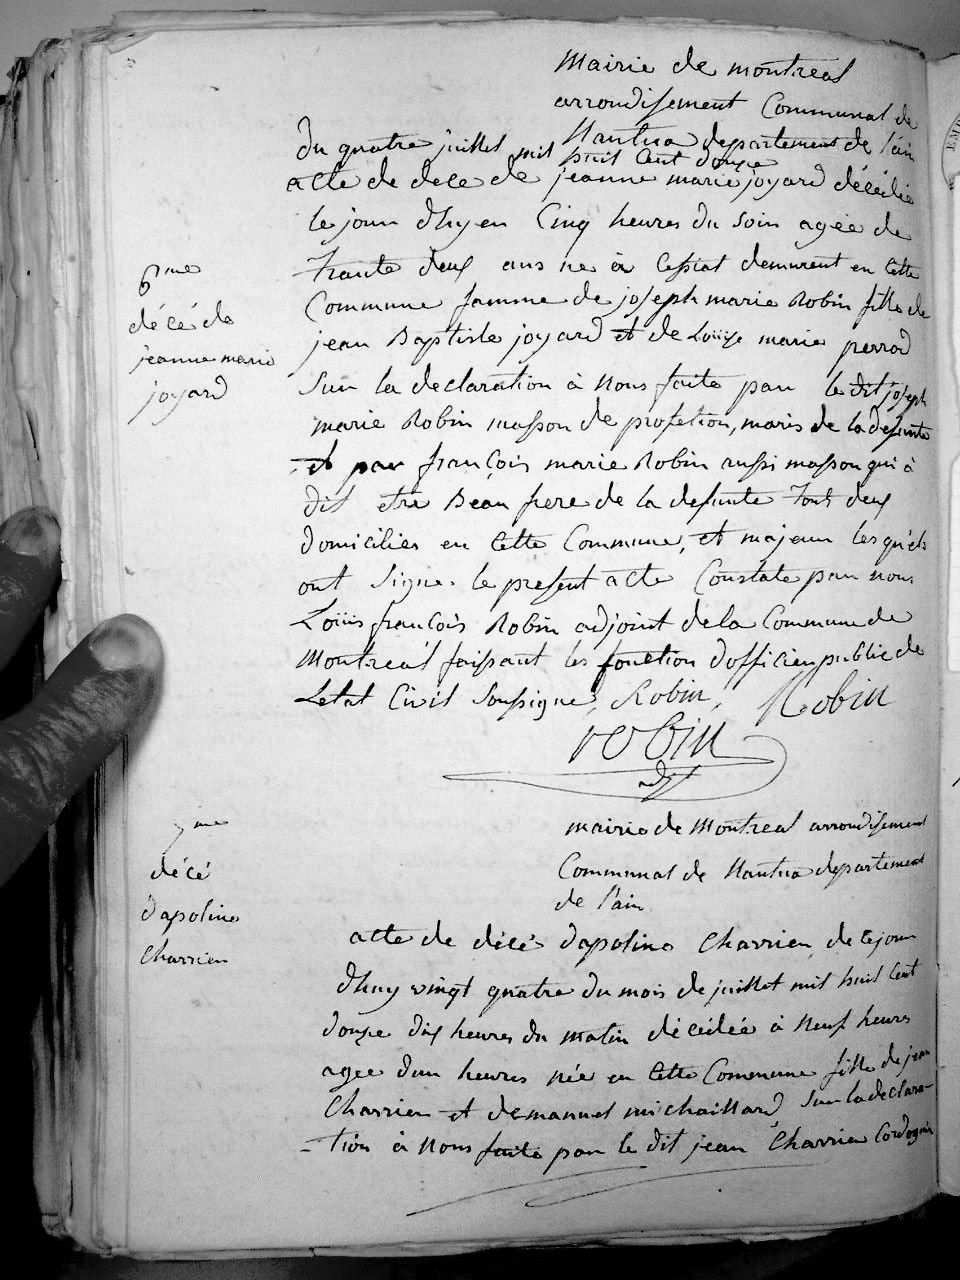 Mairie de montreal
arrondisement Communal de
Nantua departement de l'ain
Du quatre juillet mil huit Cent douze
acte de dece de jeanne marie joyard décédée
le jour dhuy en Cinq heures du soir agée de
trante deux ans né à Cessiat demurent en Cette
Commune famme de joseph marie Robin fille de
jean Baptiste joyard et de Louise marie perrod
Sur la declaration à Nous faite par le dit joseph
marie Robin masson de profetion, maris de la defunte
et par françois marie Robin aussi masson qui à
dit etre Beau frere de la defunte Tous deux
domicilies en Cette Commune, et majeur les quels
ont Signe. le present acte Constate par nous
Louis francois Robin adjoint de la Commune de
Montreal faissant les fonction dofficier public de
Letat Civil Soussigne, Robin, Robin
robin
adj
6me
décé de
jeanne marie
joyard
mairie de Montreal arrondisement
Communal de Nantua departement
de l'ain
7me
décé
dapoline
Charrier
acte de décé dapoline Charrier de ce jour
dhuy vingt quatre du mois de juillet mil huit Cent
douze dix heures du matin décédée à Neuf heures
agee dun heures née en Cette Commune fille de jean
Charrier et de manuel michaillard Sur la declara-
-tion à Nous faite par le dit jean Charrier Cordognier